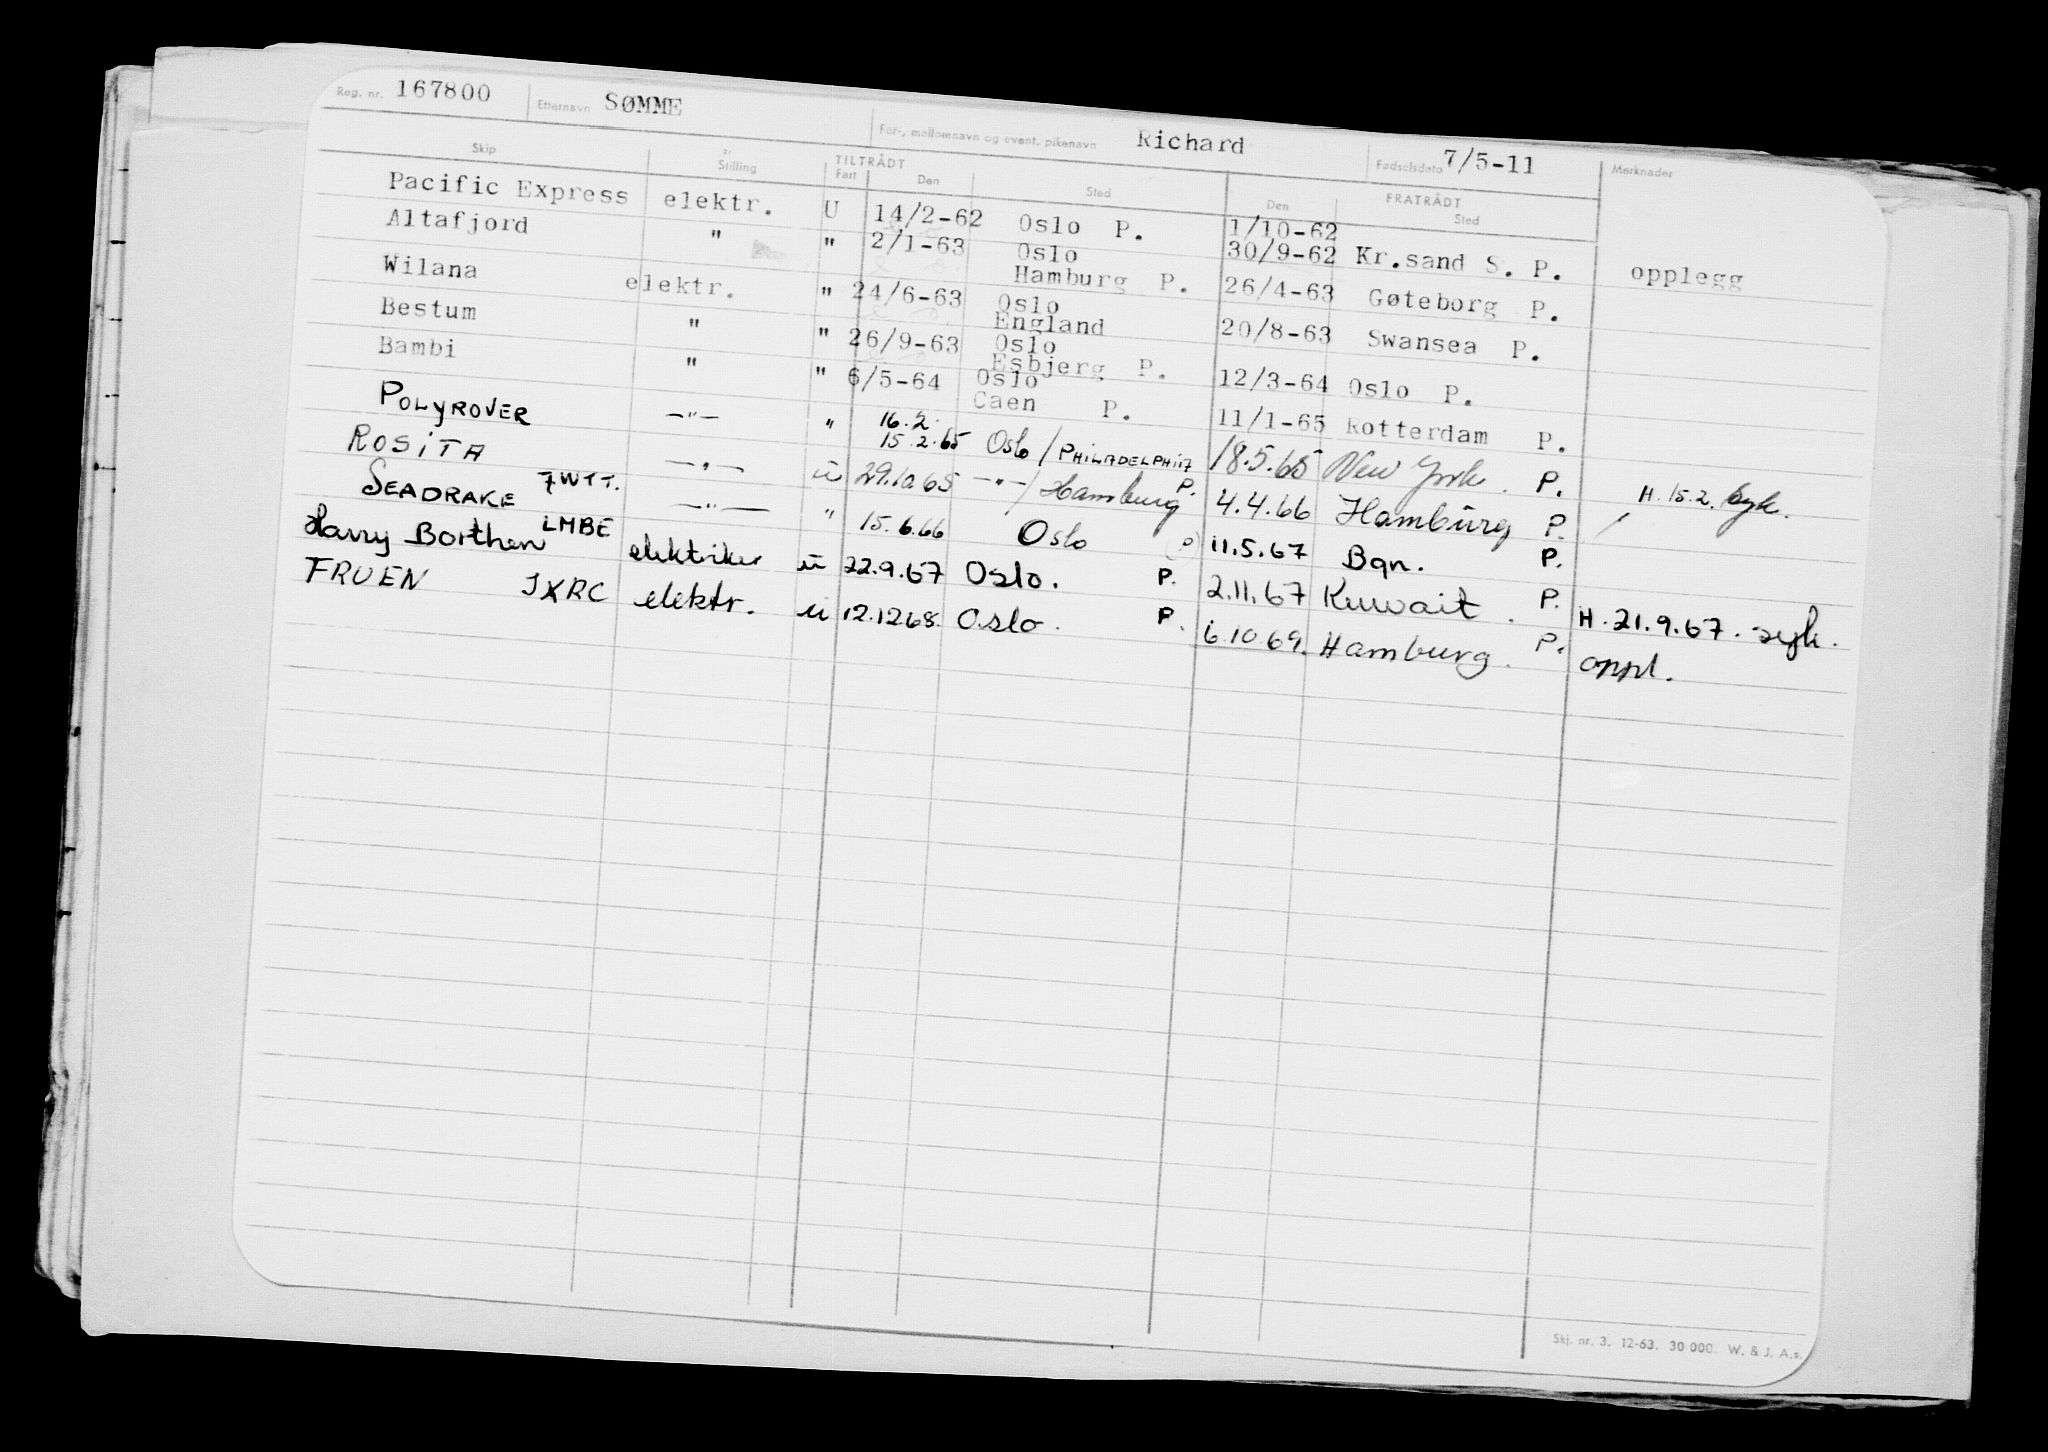 Reg. nr. 167800 Etternavn SØMME For-, mellomnavn og event. pikenavn Richard Fødselsdato 7/5-11 Merknader
Skip Stilling TILTRÅDT Fart Den Sted FRATRÅDT Den Sted
Pacific Express elektr. U 14/2-62 Oslo P. 1/10-62
30/9-62 Kr.sand S. P. opplegg
Altafjord " " 2/1-63 Oslo
Hamburg P. 26/4-63 Gøteborg P.
Wilana elektr. " 24/6-63 Oslo
England 20/8-63 Swansea P.
Bestum " " 26/9-63 Oslo
Esbjerg P. 12/3-64 Oslo P.
Bambi " " 6/5-64 Oslo
Caen P. 11/1-65 Rotterdam P.
POLYROVER —"— " 16.2.
15.2.65 Oslo / PHILADELPHIA P. 18.5.65 New York. P. H. 15.2. syk.
ROSITA 7WTT. —"— ū 29.10.65 —"— / Hamburg 4.4.66 Hamburg P.
SEADRAKE LMBE —"— " 15.6.66 Oslo (P) 11.5.67 Bgn. P.
Harry Borthen elektriker ū 22.9.67 Oslo. P. 2.11.67 Kuwait. P. H. 21.9.67. syk.
FRUEN JXRC elektr. ū 12.12.68. Oslo. P. 6.10.69. Hamburg. P. oppl.
Skj. nr. 3. 12-63. 30 000. W. & J. A.s.